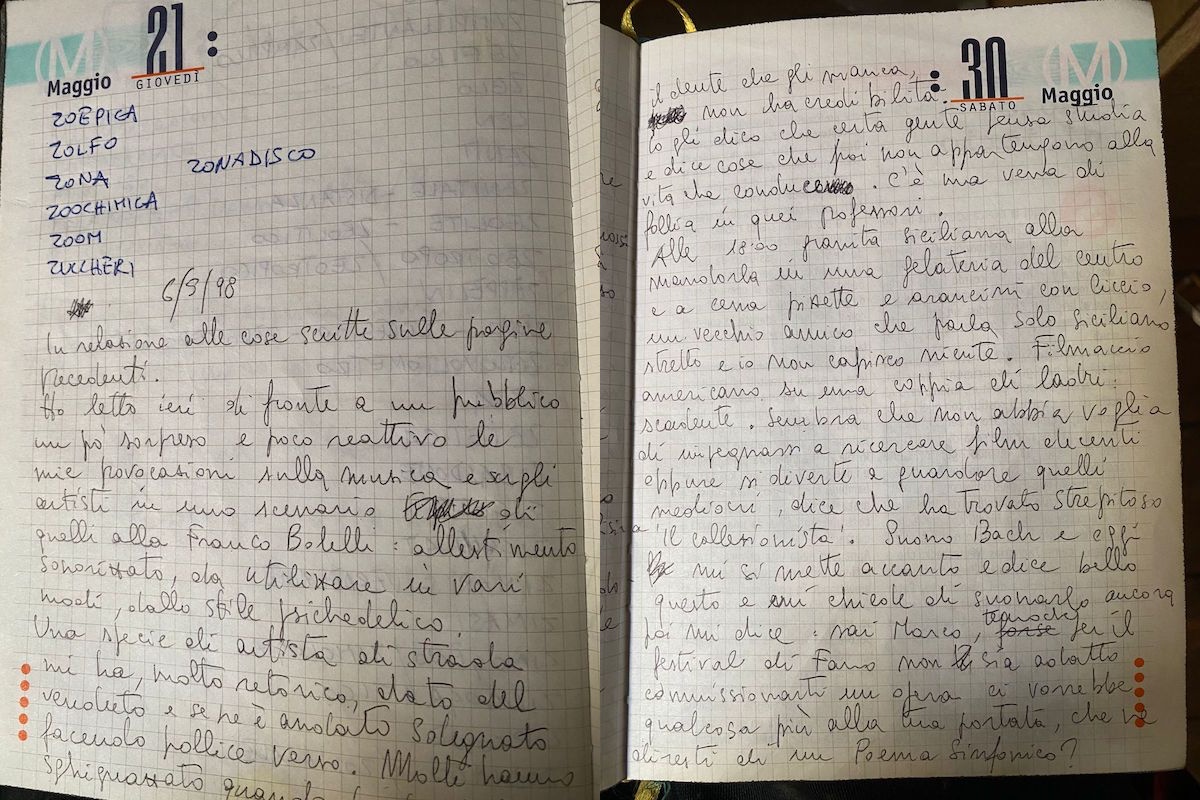 (M)
Maggio
21
GIOVEDÌ
ZOEPICA
ZOLFO
ZONADISCO
ZONA
ZOOCHIMICA
ZOOM
ZUCCHERI
6/9/98
In relazione alle cose scritte sulle pagine
precedenti.
Ho letto ieri di fronte a un pubblico
un pò sorpreso e poco reattivo le
mie provocazioni sulla musica e sugli
artisti in uno scenario di
quelli alla Franco Bolelli: allestimento
sonorizzato, da utilizzare in vari
modi, dallo stile psichedelico.
Una specie di artista di strada
mi ha, molto retorico, dato del
venduto e se ne è andato sdegnato
facendo pollice verso. Molti hanno
sghignazzato quando
30
SABATO
(M)
Maggio
il dente che gli manca,
non ha credibilità.
Io gli dico che certa gente pensa studia
e dice cose che poi non appartengono alla
vita che conduce. C'è una vena di
follia in quei professori.
Alle 18:00 granita siciliana alla
mandorla in una gelateria del centro
e a cena pizzette e arancini con Ciccio,
un vecchio amico che parla solo siciliano
stretto e io non capisco niente. Filmaccio
americano su una coppia di ladri:
scadente. Sembra che non abbia voglia
di impegnarsi a ricercare film decenti
oppure si diverte a guardare quelli
mediocri, dice che ha trovato strepitoso
'Il collezionista'. Suono Bach e
mi si mette accanto e dice bello
questo e mi chiede di suonarlo ancora
poi mi dice: sai Marco, temo che per il
festival di Fano non sia adatto
commissionarti un opera ci vorrebbe
qualcosa più alla tua portata, che ne
diresti di un Poema Sinfonico?